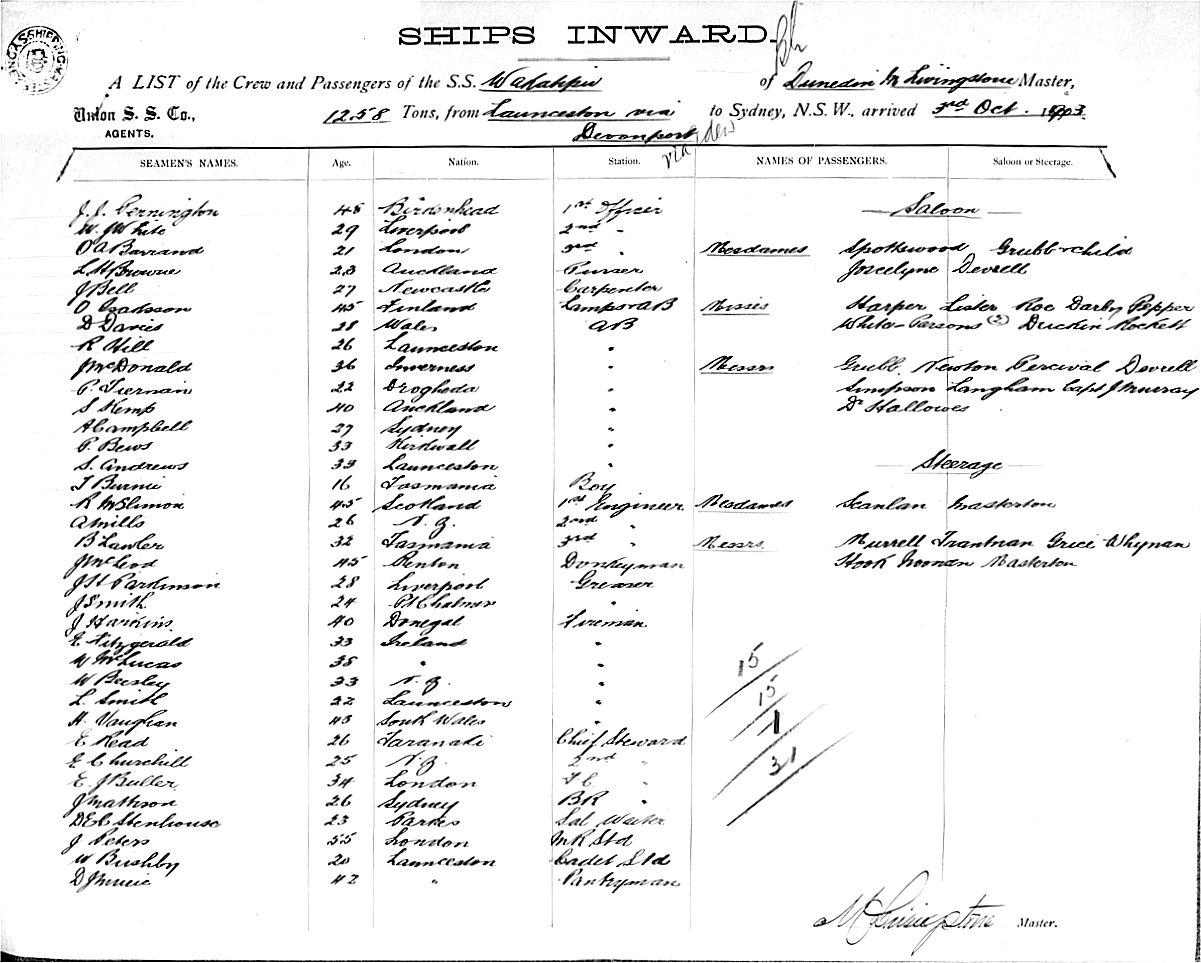 SHIPS INWARD.
A LIST of the Crew and Passengers of the S.S. Wakatipu of Dunedin M Livingstone Master,
Union S. S. Co., 1258 Tons, from Launceston via to Sydney, N.S.W., arrived 3rd Oct. 1903
AGENTS. Devonport
via Eden
SEAMEN'S NAMES. Age. Nation. Station. NAMES OF PASSENGERS. Saloon or Steerage.
J. J. Pennington 48 Birkenhead 1st Officer Saloon
W. J White 29 Liverpool 2nd "
O A Barrand 21 London 3rd " Mesdames Spottswood Grubb & child
L H Browne 23 Auckland Purser Jocelyne Devrell
J Bell 27 Newcastle Carpenter
O Isaksson 45 Finland Lamps & AB Misses Harper Lister Roe Darby Pepper
D Davies 28 Wales AB White Parsons (2) Duckin Rockett
R Hill 26 Launceston "
J McDonald 36 Inverness " Messrs Grubb Newton Percival Devrell
P. Tiernan 22 Drogheda " Simpson Langham Capt J Murray
S Kemp 40 Auckland " Dr Hallowes
A Campbell 27 Sydney "
P. Bews 33 Kirkwall "
S. Andrews 39 Launceston " Steerage
T Burnie 16 Tasmania Boy
R McSlimon 45 Scotland 1st Engineer Mesdames Scanlan Masterton
A Mills 26 N. Z. 2nd "
B Lawler 32 Tasmania 3rd " Messrs. Murrell Trantnan Grice Whynan
J McLeod 45 Renton Donkeyman Hook Noonan Masterton
J H Parkinson 28 Liverpool Greaser
J Smith 24 Pt Chalmers "
J Harkins 40 Donegal Fireman
E Fitzgerald 33 Ireland "
W McLucas 38 " " 15
W Beesley 33 N. Z. "
L. Smith 22 Launceston " 15
H. Vaughan 43 South Wales " 1
E Read 26 Taranaki Chief Steward
E Churchill 25 N. Z. 2nd " 31
E. J Buller 34 London F C "
J Mathison 26 Sydney BR "
D E C Stenhouse 23 Parkes Sal Waiter
J Peters 55 London MR Std
W Bushby 20 Launceston Cadet Std
D J Muir 42 " Pantryman
M Livingstone Master.